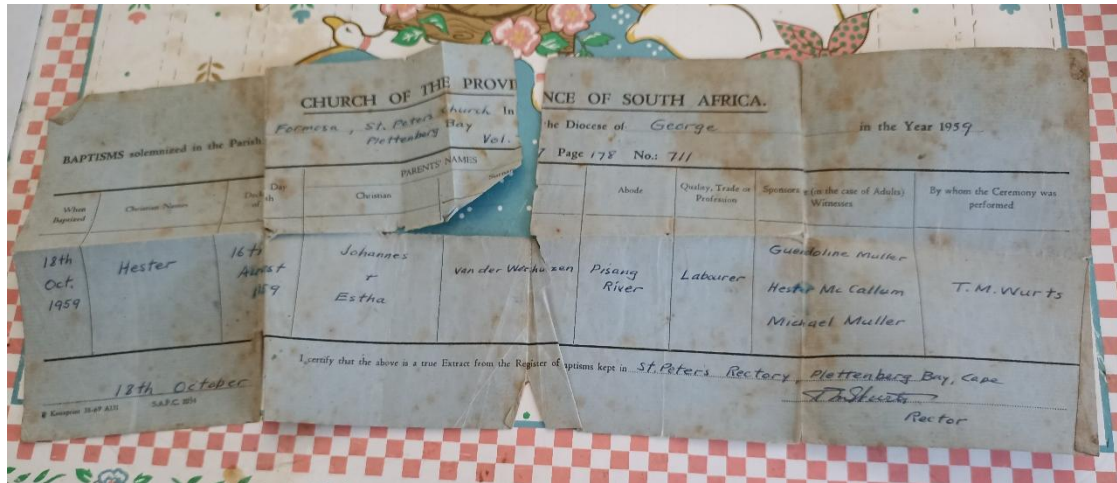 CHURCH OF THE PROVINCE OF SOUTH AFRICA.
BAPTISMS solemnized in the Parish Formosa, St. Peters Church In the Diocese of George in the Year 1959
Plettenberg Bay Vol. Page 178 No.: 711
PARENTS' NAMES
When Baptized
Christian Names
Day
Christian
Abode
Quality, Trade or Profession
Sponsors (in the case of Adults) Witnesses
By whom the Ceremony was performed
18th Oct. 1959
Hester
16th
Johannes
+
Estha
Pisang River
Labourer
Guendoline Muller
Hester Mc Callum
Michael Muller
T. M. Wurts
I certify that the above is a true Extract from the Register of aptisms kept in St. Peters Rectory, Plettenberg Bay, Cape
18th October
Rector
S.A.P.C.